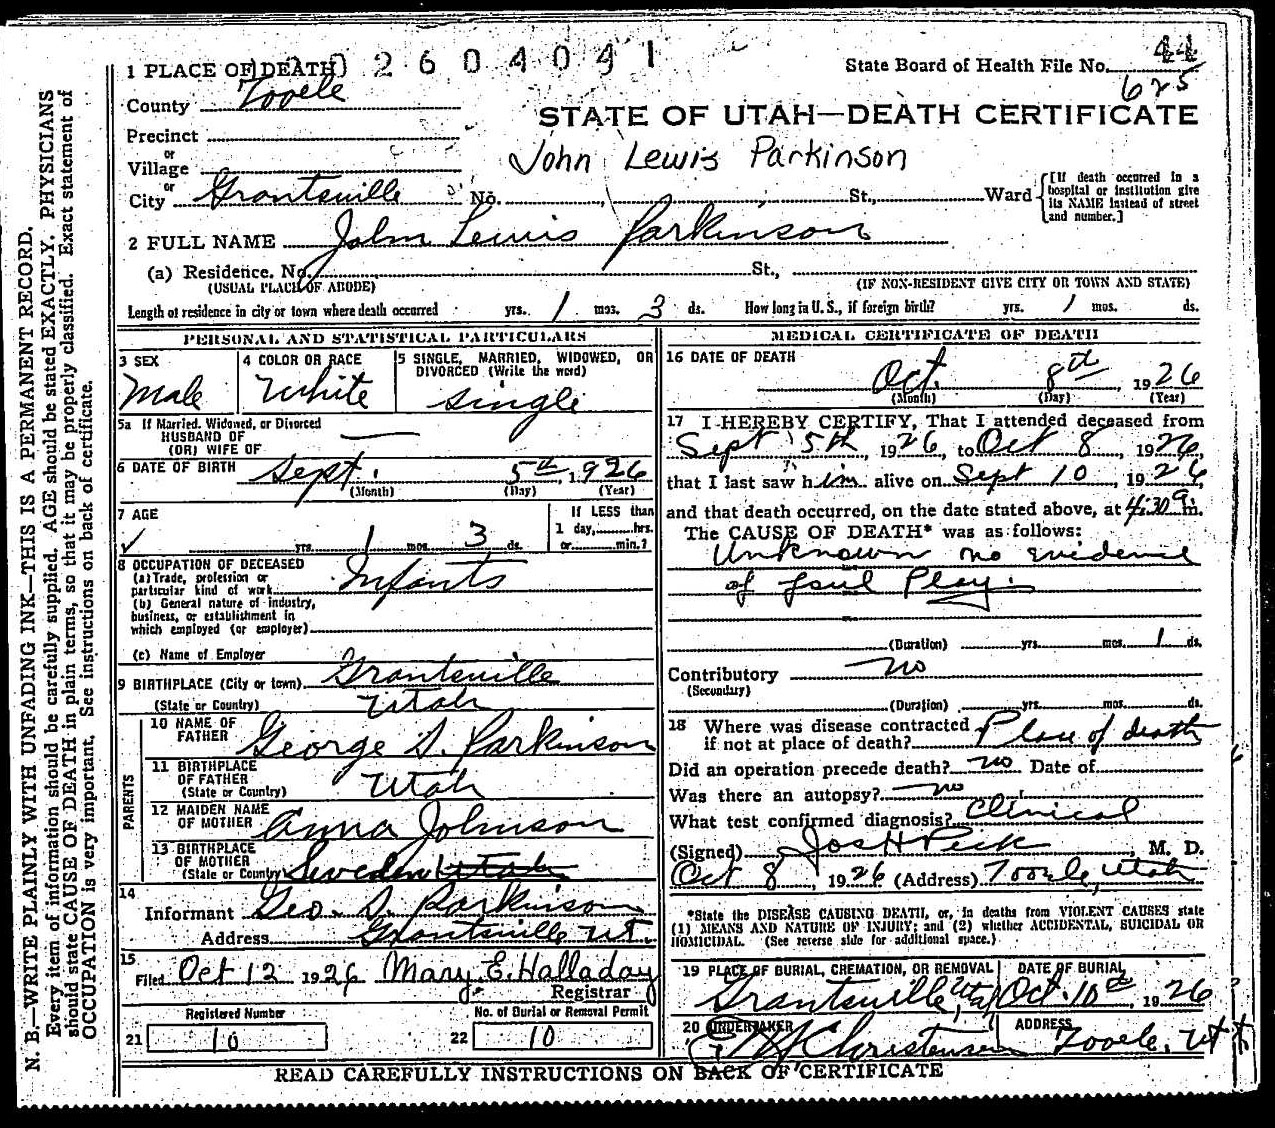 N. B.—WRITE PLAINLY WITH UNFADING INK—THIS IS A PERMANENT RECORD.
Every item of information should be carefully supplied. AGE should be stated EXACTLY. PHYSICIANS
should state CAUSE OF DEATH in plain terms, so that it may be properly classified. Exact statement of
OCCUPATION is very important. See instructions on back of certificate.
2604041
1 PLACE OF DEATH
State Board of Health File No. 44
625
County Tooele
STATE OF UTAH—DEATH CERTIFICATE
Precinct
or
Village
John Lewis Parkinson
or
City Grantsville No. St., Ward
[If death occurred in a
hospital or institution give
its NAME instead of street
and number.]
2 FULL NAME John Lewis Parkinson
(a) Residence. No. St.,
(USUAL PLACE OF ABODE) (IF NON-RESIDENT GIVE CITY OR TOWN AND STATE)
Length of residence in city or town where death occurred yrs. 1 mos. 3 ds. How long in U. S., if foreign birth? yrs. 1 mos. ds.
PERSONAL AND STATISTICAL PARTICULARS
3 SEX
Male
4 COLOR OR RACE
White
5 SINGLE, MARRIED, WIDOWED, OR
DIVORCED (Write the word)
single
5a If Married, Widowed, or Divorced
HUSBAND OF
(OR) WIFE OF —
6 DATE OF BIRTH Sept. 5th, 1926
(Month) (Day) (Year)
7 AGE
yrs. 1 mos. 3 ds.
If LESS than
1 day, hrs.
or min.?
8 OCCUPATION OF DECEASED
(a) Trade, profession or
particular kind of work Infants
(b) General nature of industry,
business, or establishment in
which employed (or employer)
(c) Name of Employer
9 BIRTHPLACE (City or town) Grantsville
(State or Country) Utah
PARENTS
10 NAME OF
FATHER George S. Parkinson
11 BIRTHPLACE
OF FATHER
(State or Country) Utah
12 MAIDEN NAME
OF MOTHER Anna Johnson
13 BIRTHPLACE
OF MOTHER
(State or Country) Sweden Utah
14
Informant Geo. S. Parkinson
Address Grantsville Ut.
15
Filed Oct 12 1926 Mary E. Halladay
Registrar
Registered Number
21 10
No. of Burial or Removal Permit
22 10
MEDICAL CERTIFICATE OF DEATH
16 DATE OF DEATH
Oct. 8th 1926
(Month) (Day) (Year)
17 I HEREBY CERTIFY, That I attended deceased from
Sept 5th, 1926, to Oct 8, 1926,
that I last saw him alive on Sept 10, 1926,
and that death occurred, on the date stated above, at 4:30 a m.
The CAUSE OF DEATH* was as follows:
Unknown no evidence
of foul Play.
(Duration) yrs. mos. 1 ds.
Contributory no
(Secondary)
(Duration) yrs. mos. ds.
18 Where was disease contracted
if not at place of death? Place of death
Did an operation precede death? no Date of
Was there an autopsy? no
What test confirmed diagnosis? Clinical
(Signed) Jos H Peck, M. D.
Oct 8, 1926 (Address) Tooele, Utah
*State the DISEASE CAUSING DEATH, or, in deaths from VIOLENT CAUSES state
(1) MEANS AND NATURE OF INJURY; and (2) whether ACCIDENTAL, SUICIDAL OR
HOMICIDAL. (See reverse side for additional space.)
19 PLACE OF BURIAL, CREMATION, OR REMOVAL
Grantsville, Utah
DATE OF BURIAL
Oct. 10th, 1926
20 UNDERTAKER
Christensen
ADDRESS
Tooele, Ut
READ CAREFULLY INSTRUCTIONS ON BACK OF CERTIFICATE